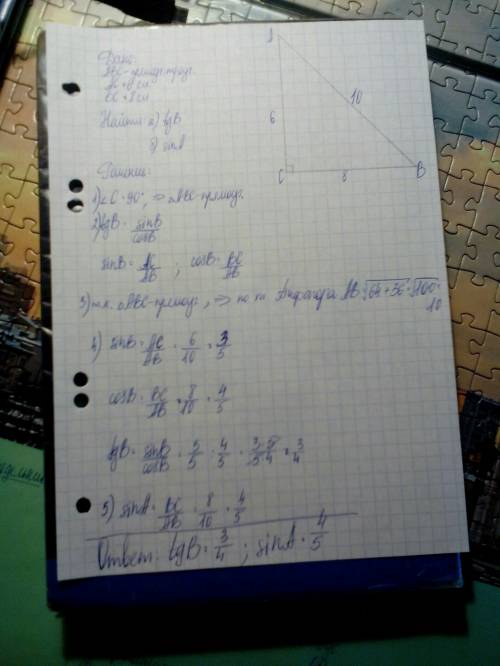 Дано:
ABC - прямоуг. треуг.
AC = 6 см
BC = 8 см
Найти: а) tgB
б) sinA
Решение:
A
6
10
C
8
B
1) ∠C = 90°, => △ABC - прямоуг.
2) tgB = sinB/cosB
sinB = AC/AB ; cosB = BC/AB
3) т.к. △ABC - прямоуг., => по т. Пифагора AB = √64+36 = √100 =
10
4) sinB = AC/AB = 6/10 = 3/5
cosB = BC/AB = 8/10 = 4/5
tgB = sinB/cosB = 3/5 : 4/5 = 3/5 · 5/4 = 3/4
5) sinA = BC/AB = 8/10 = 4/5
Ответ: tgB = 3/4 ; sinA = 4/5